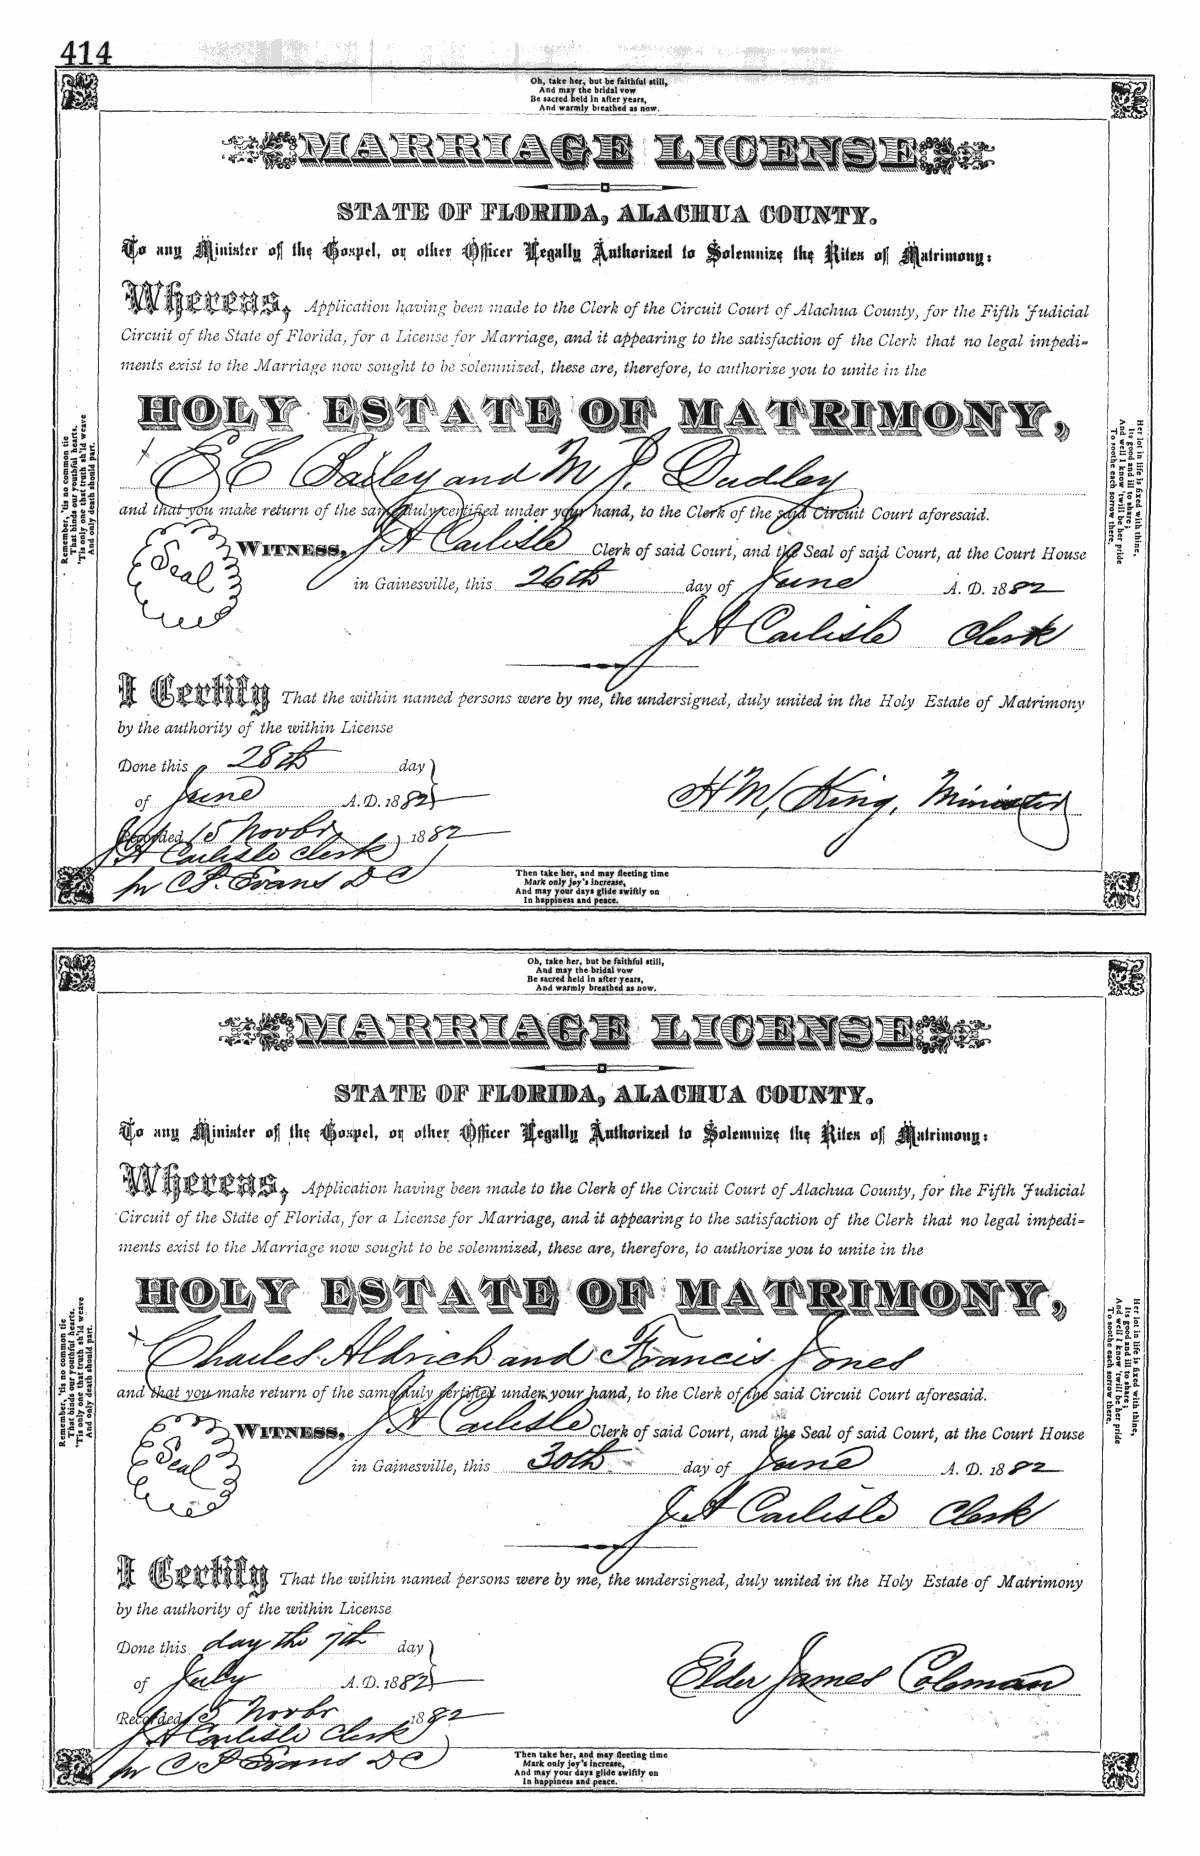 414
Oh, take her, but be faithful still,
And may the bridal vow
Be sacred held in after years,
And warmly breathed as now.
MARRIAGE LICENSE
STATE OF FLORIDA, ALACHUA COUNTY.
To any Minister of the Gospel, or other Officer Legally Authorized to Solemnize the Rites of Matrimony:
Whereas, Application having been made to the Clerk of the Circuit Court of Alachua County, for the Fifth Judicial
Circuit of the State of Florida, for a License for Marriage, and it appearing to the satisfaction of the Clerk that no legal impedi-
ments exist to the Marriage now sought to be solemnized, these are, therefore, to authorize you to unite in the
HOLY ESTATE OF MATRIMONY,
x E C Bailey and M J. Dudley
and that you make return of the same duly certified under your hand, to the Clerk of the said Circuit Court aforesaid.
Seal
WITNESS, J A Carlisle Clerk of said Court, and the Seal of said Court, at the Court House
in Gainesville, this 26th day of June A. D. 1882
J A Carlisle Clerk
I Certify That the within named persons were by me, the undersigned, duly united in the Holy Estate of Matrimony
by the authority of the within License
Done this 28th day
of June A.D. 1882
H M, King, Minister
Recorded 15 Novbr 1882
J A Carlisle Clerk
pr C P. Evans D C
Then take her, and may fleeting time
Mark only joy's increase,
And may your days glide swiftly on
In happiness and peace.
Remember, 'tis no common tie
That binds our youthful hearts,
'Tis only one that truth sh'ld weave
And only death should part.
Her lot in life is fixed with thine,
Its good and ill to share;
And well I know 'twill be her pride
To soothe each sorrow there.
Oh, take her, but be faithful still,
And may the bridal vow
Be sacred held in after years,
And warmly breathed as now.
MARRIAGE LICENSE
STATE OF FLORIDA, ALACHUA COUNTY.
To any Minister of the Gospel, or other Officer Legally Authorized to Solemnize the Rites of Matrimony:
Whereas, Application having been made to the Clerk of the Circuit Court of Alachua County, for the Fifth Judicial
Circuit of the State of Florida, for a License for Marriage, and it appearing to the satisfaction of the Clerk that no legal impedi-
ments exist to the Marriage now sought to be solemnized, these are, therefore, to authorize you to unite in the
HOLY ESTATE OF MATRIMONY,
x Charles Aldrich and Francis Jones
and that you make return of the same duly certified under your hand, to the Clerk of the said Circuit Court aforesaid.
Seal
WITNESS, J A Carlisle Clerk of said Court, and the Seal of said Court, at the Court House
in Gainesville, this 30th day of June A. D. 1882
J A Carlisle Clerk
I Certify That the within named persons were by me, the undersigned, duly united in the Holy Estate of Matrimony
by the authority of the within License
Done this day the 7th day
of July A.D. 1882
Elder James Coleman
Recorded 15 Novbr 1882
J A Carlisle Clerk
pr C P Evans D C
Then take her, and may fleeting time
Mark only joy's increase,
And may your days glide swiftly on
In happiness and peace.
Remember, 'tis no common tie
That binds our youthful hearts,
'Tis only one that truth sh'ld weave
And only death should part.
Her lot in life is fixed with thine,
Its good and ill to share;
And well I know 'twill be her pride
To soothe each sorrow there.